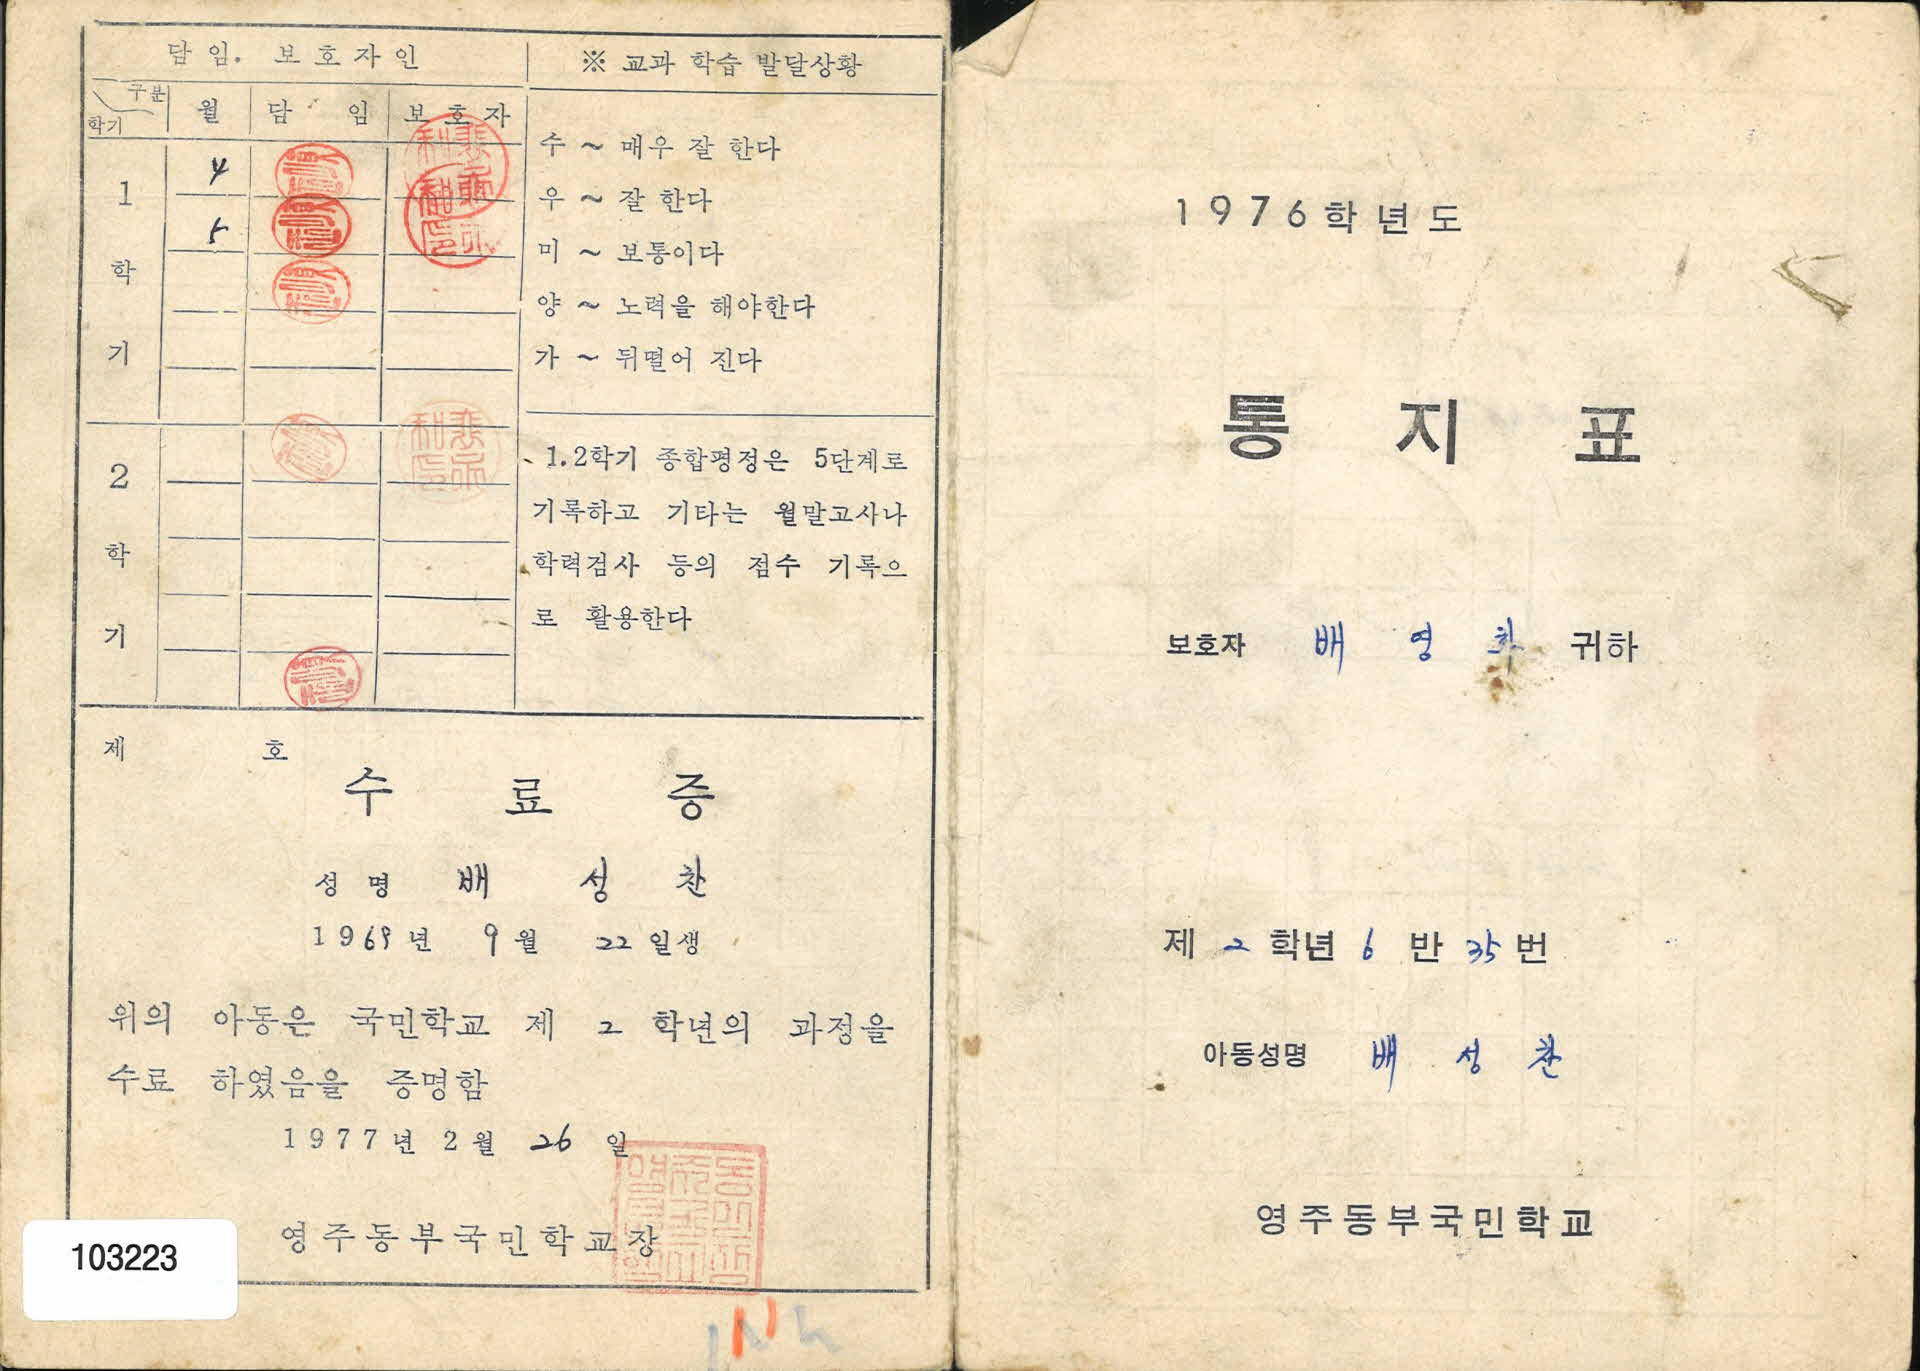 담임. 보호자인
구분
학기
월
담 임
보호자
1 학 기
4
5
2 학 기
※ 교과 학습 발달상황
수 ~ 매우 잘 한다
우 ~ 잘 한다
미 ~ 보통이다
양 ~ 노력을 해야한다
가 ~ 뒤떨어 진다
1.2학기 종합평정은 5단계로
기록하고 기타는 월말고사나
학력검사 등의 점수 기록으
로 활용한다
제 호
수 료 증
성 명 배 성 찬
1969년 9월 22일생
위의 아동은 국민학교 제 2 학년의 과정을
수료 하였음을 증명함
1977년 2월 26 일
영주동부국민학교장
103223
1976학년도
통 지 표
보호자 배 영 귀하
제 2 학년 6 반 35번
아동성명 배 성 찬
영주동부국민학교